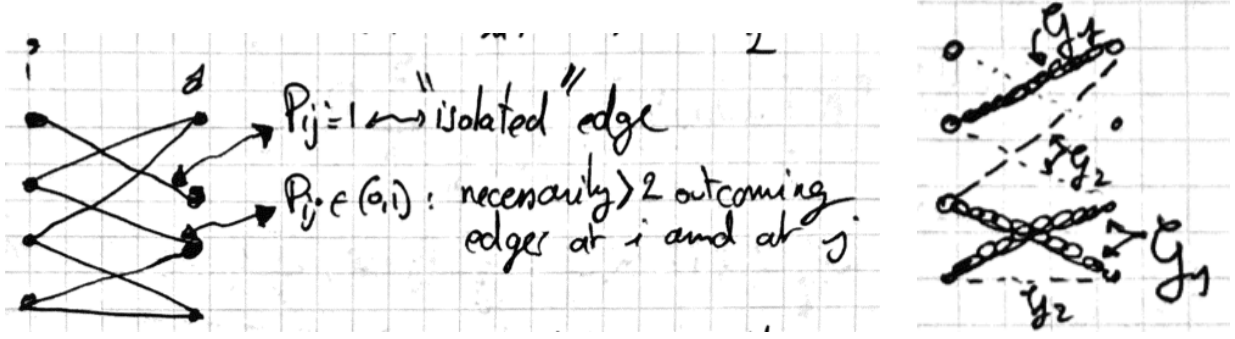 2
i
j
P_ij = 1 ⟷ "isolated" edge
P_ij ∈ (0,1) : necessarily ⩾ 2 outcoming
edges at i and at j
G_1
G_2
G_1
G_2